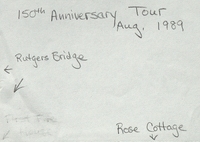 150th Anniversary Tour
Aug. 1989
Rutgers Bridge
Rose Cottage